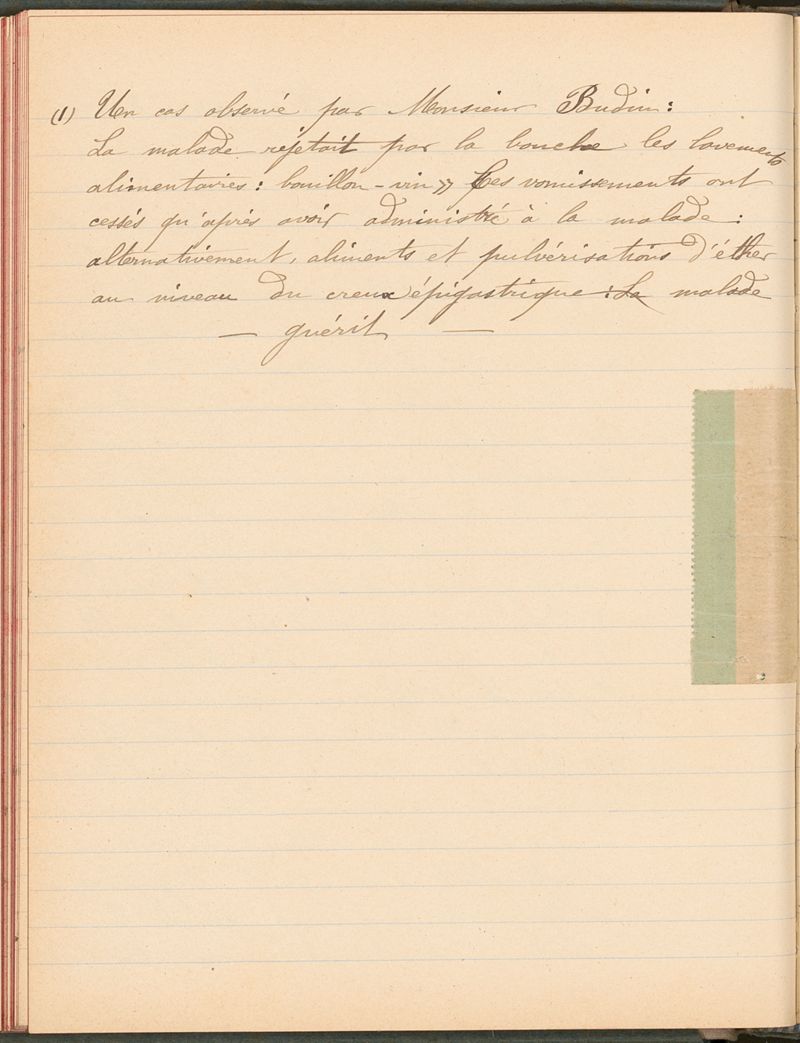 (1) Un cas observé par Monsieur Budin :
La malade réjetait par la bouche les lavements
alimentaires : bouillon - vin » Ces vomissements ont
cessés qu'après avoir administré à la malade :
alternativement, aliments et pulvérisations d'éther
au niveau du creux épigastrique : La malade
— guérit —